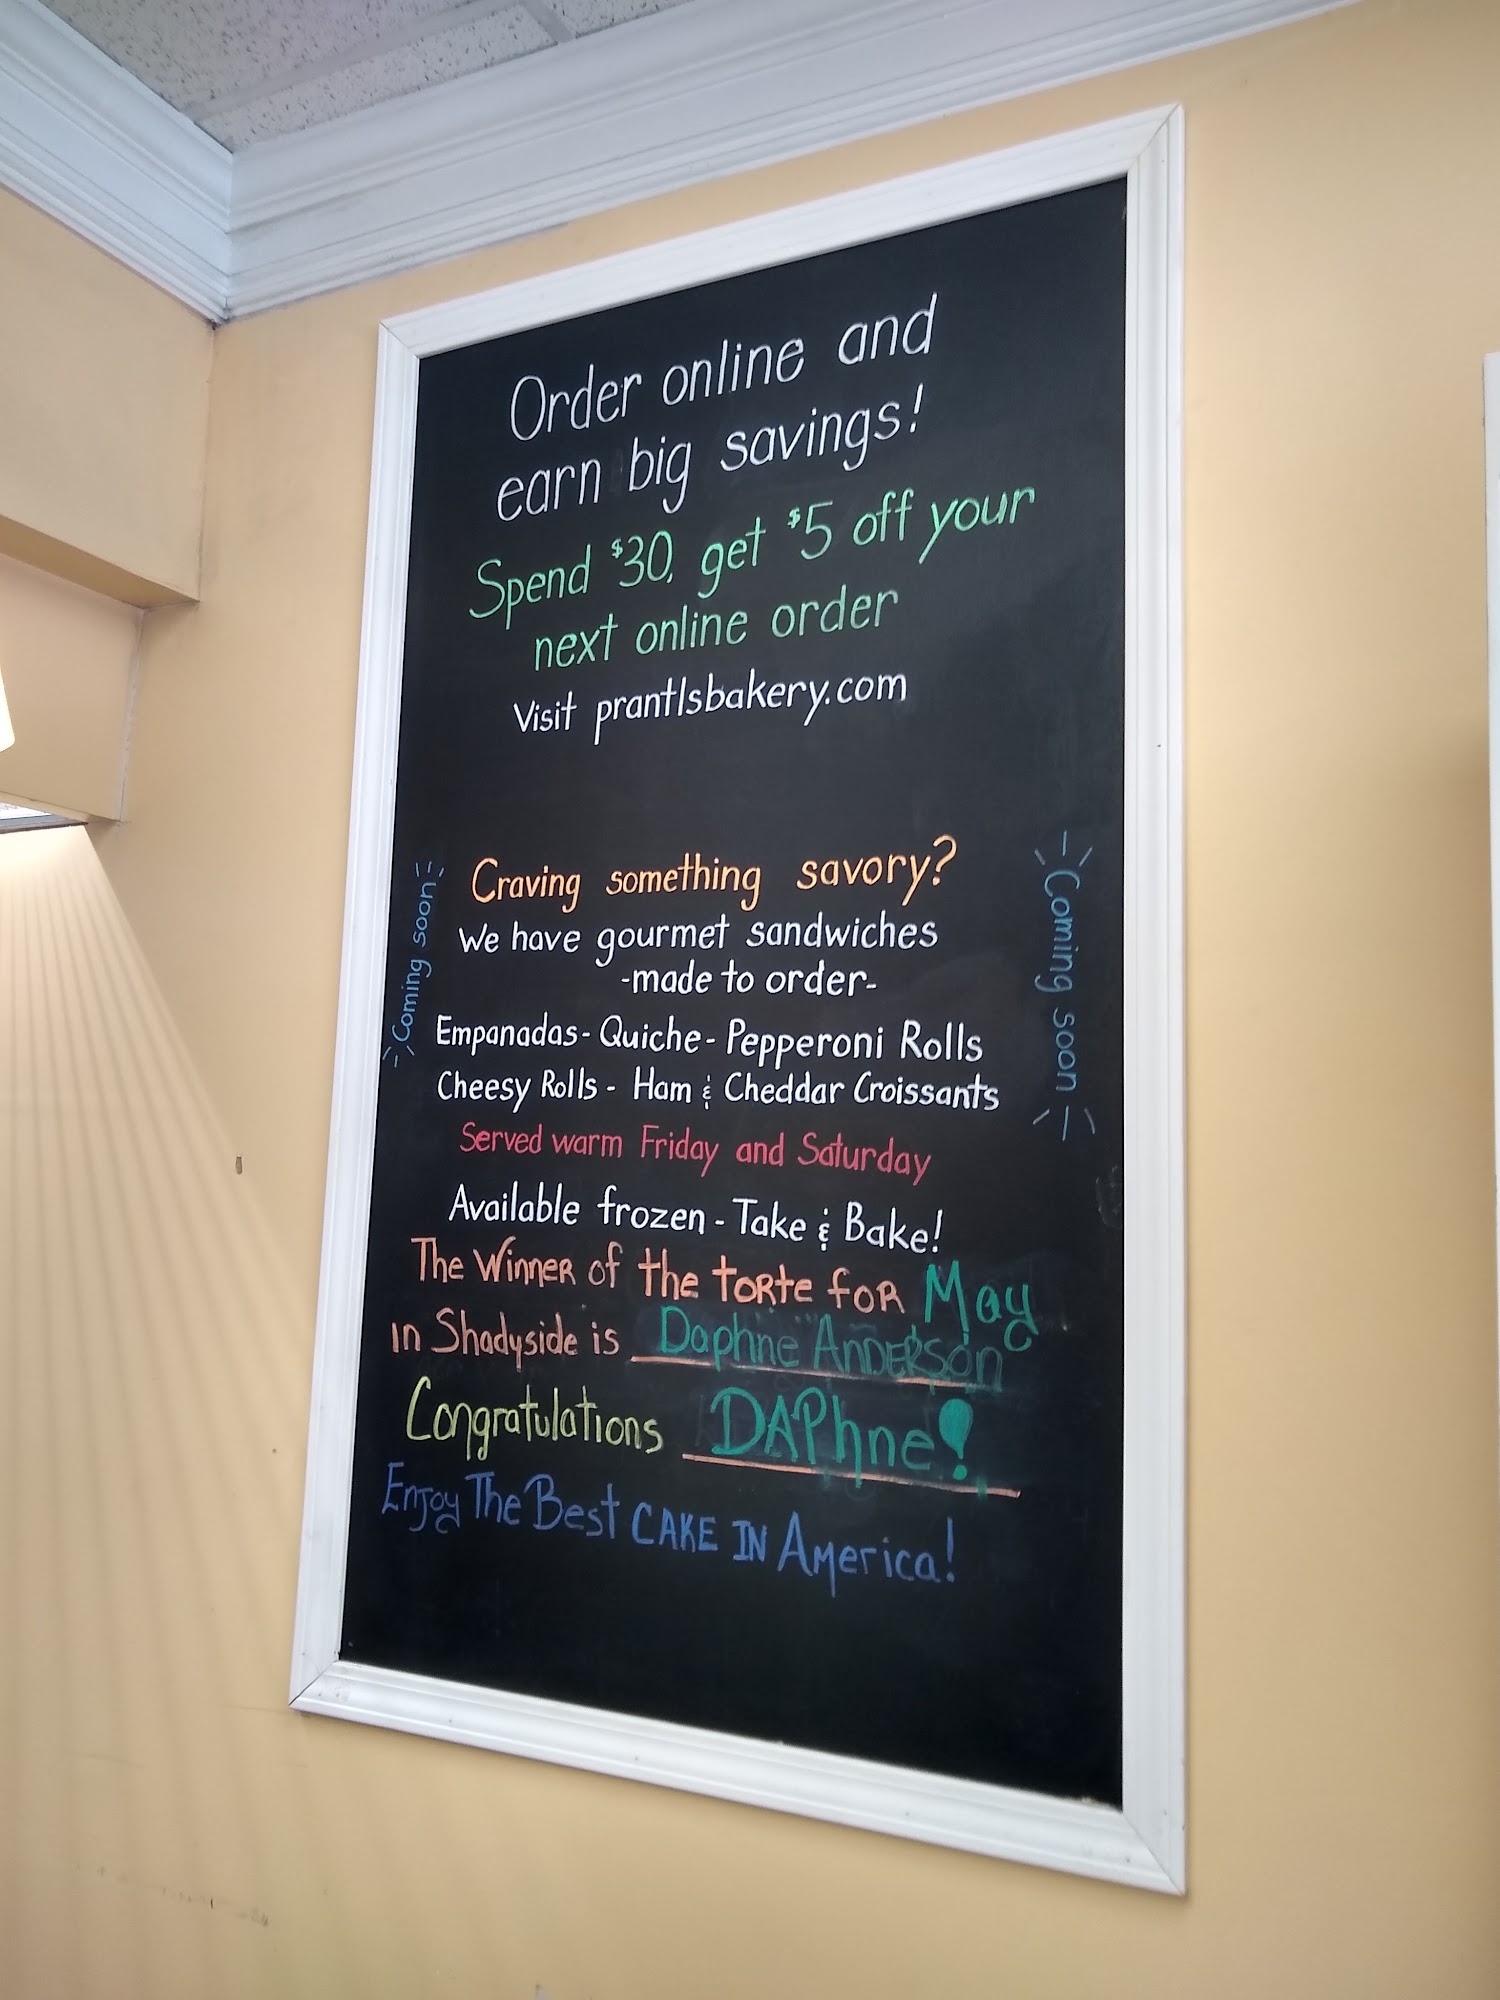 Order online and
earn big savings!
Spend $30, get $5 off your
next online order
Visit prantlsbakery.com
Coming soon
Craving something savory?
We have gourmet sandwiches
-made to order-
Empanadas - Quiche - Pepperoni Rolls
Cheesy Rolls - Ham & Cheddar Croissants
Served warm Friday and Saturday
Available frozen - Take & Bake!
Coming soon
The Winner of the torte for May
in Shadyside is Daphne Anderson
Congratulations DAPhne!
Enjoy The Best CAKE IN America!